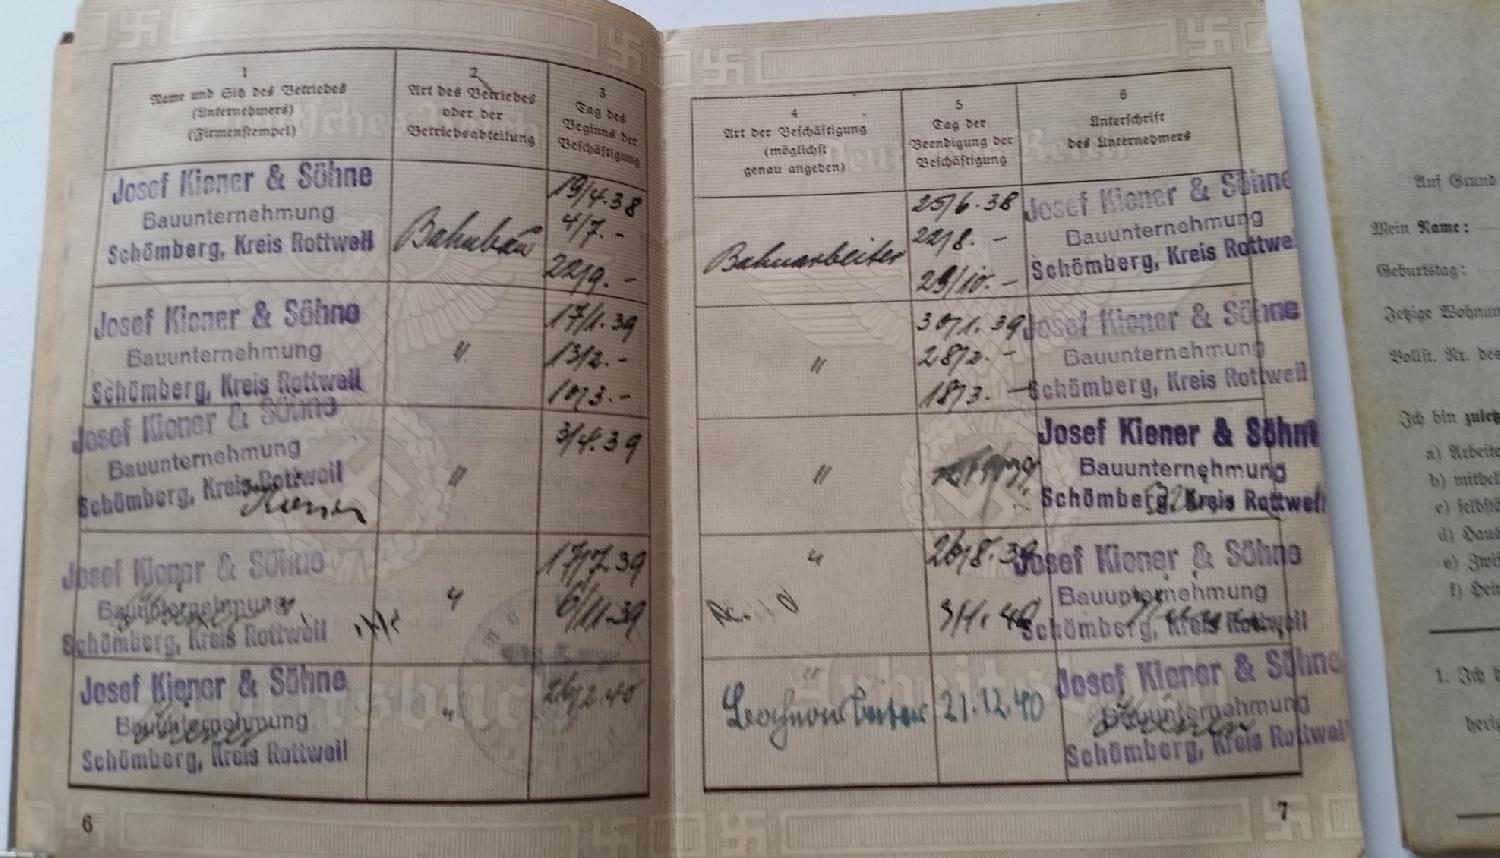 1
Name und Sitz des Betriebes
(Unternehmers)
(Firmenstempel)
2
Art des Betriebes
oder der
Betriebsabteilung
3
Tag des
Beginns der
Beschäftigung
Josef Kiener & Söhne
Bauunternehmung
Schömberg, Kreis Rottweil
Bahnbau
19/4.38
4/7. -
22/9. -
Josef Kiener & Söhne
Bauunternehmung
Schömberg, Kreis Rottweil
"
17/1.39
13/2. -
10/3. -
Josef Kiener & Söhne
Bauunternehmung
Schömberg, Kreis Rottweil
Kiener
"
3/4.39
Josef Kiener & Söhne
Bauunternehmung
Schömberg, Kreis Rottweil
"
17/7.39
6/11.39
Josef Kiener & Söhne
Bauunternehmung
Schömberg, Kreis Rottweil
"
26/2.40
6
4
Art der Beschäftigung
(möglichst
genau angeben)
5
Tag der
Beendigung der
Beschäftigung
6
Unterschrift
des Unternehmers
Bahnarbeiter
25/6.38
22/8. -
29/10. -
Josef Kiener & Söhne
Bauunternehmung
Schömberg, Kreis Rottwei
"
30/1.39
28/2. -
18/3. -
Josef Kiener & Söhne
Bauunternehmung
Schömberg, Kreis Rottweil
"
Josef Kiener & Söhne
Bauunternehmung
Schömberg, Kreis Rottweil
"
26/8.39
3/1.40
Josef Kiener & Söhne
Bauunternehmung
Schömberg, Kreis Rottweil
"
21.12.40
Josef Kiener & Söhne
Bauunternehmung
Schömberg, Kreis Rottweil
7
Auf Grund
Mein Name:
Geburtstag:
Jetzige Wohnun
Vollst. Nr. des
Ich bin zuletz
a) Arbeite
b) mithel
c) selbstä
d) Haus
e) Zwi
f) Hein
1. Ich b